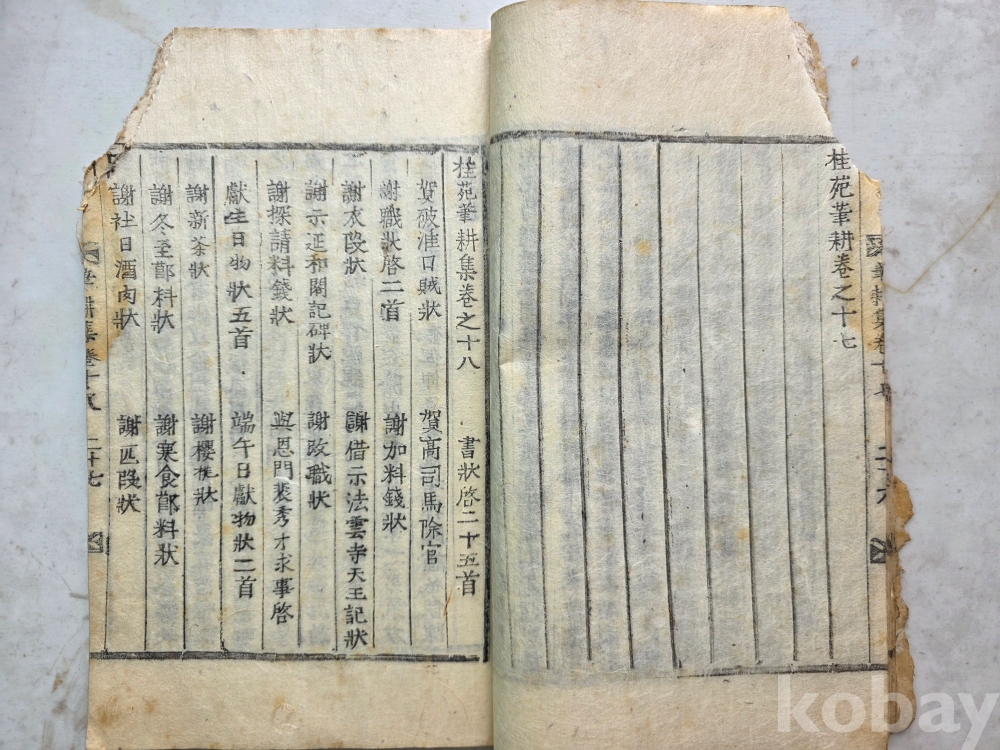 桂苑筆耕卷之十七
桂苑筆耕集卷之十八
書狀啓二十五首
賀破淮口賊狀
賀高司馬除官
謝職狀啓二首
謝加料錢狀
謝衣段狀
謝借示法雲寺天王記狀
謝示延和閣記碑狀
謝改職狀
謝探請料錢狀
與恩門裴秀才求事啓
獻生日物狀五首
端午日獻物狀二首
謝新茶狀
謝櫻桃狀
謝冬至節料狀
謝寒食節料狀
謝社日酒肉狀
謝疋段狀
二十七
kobay